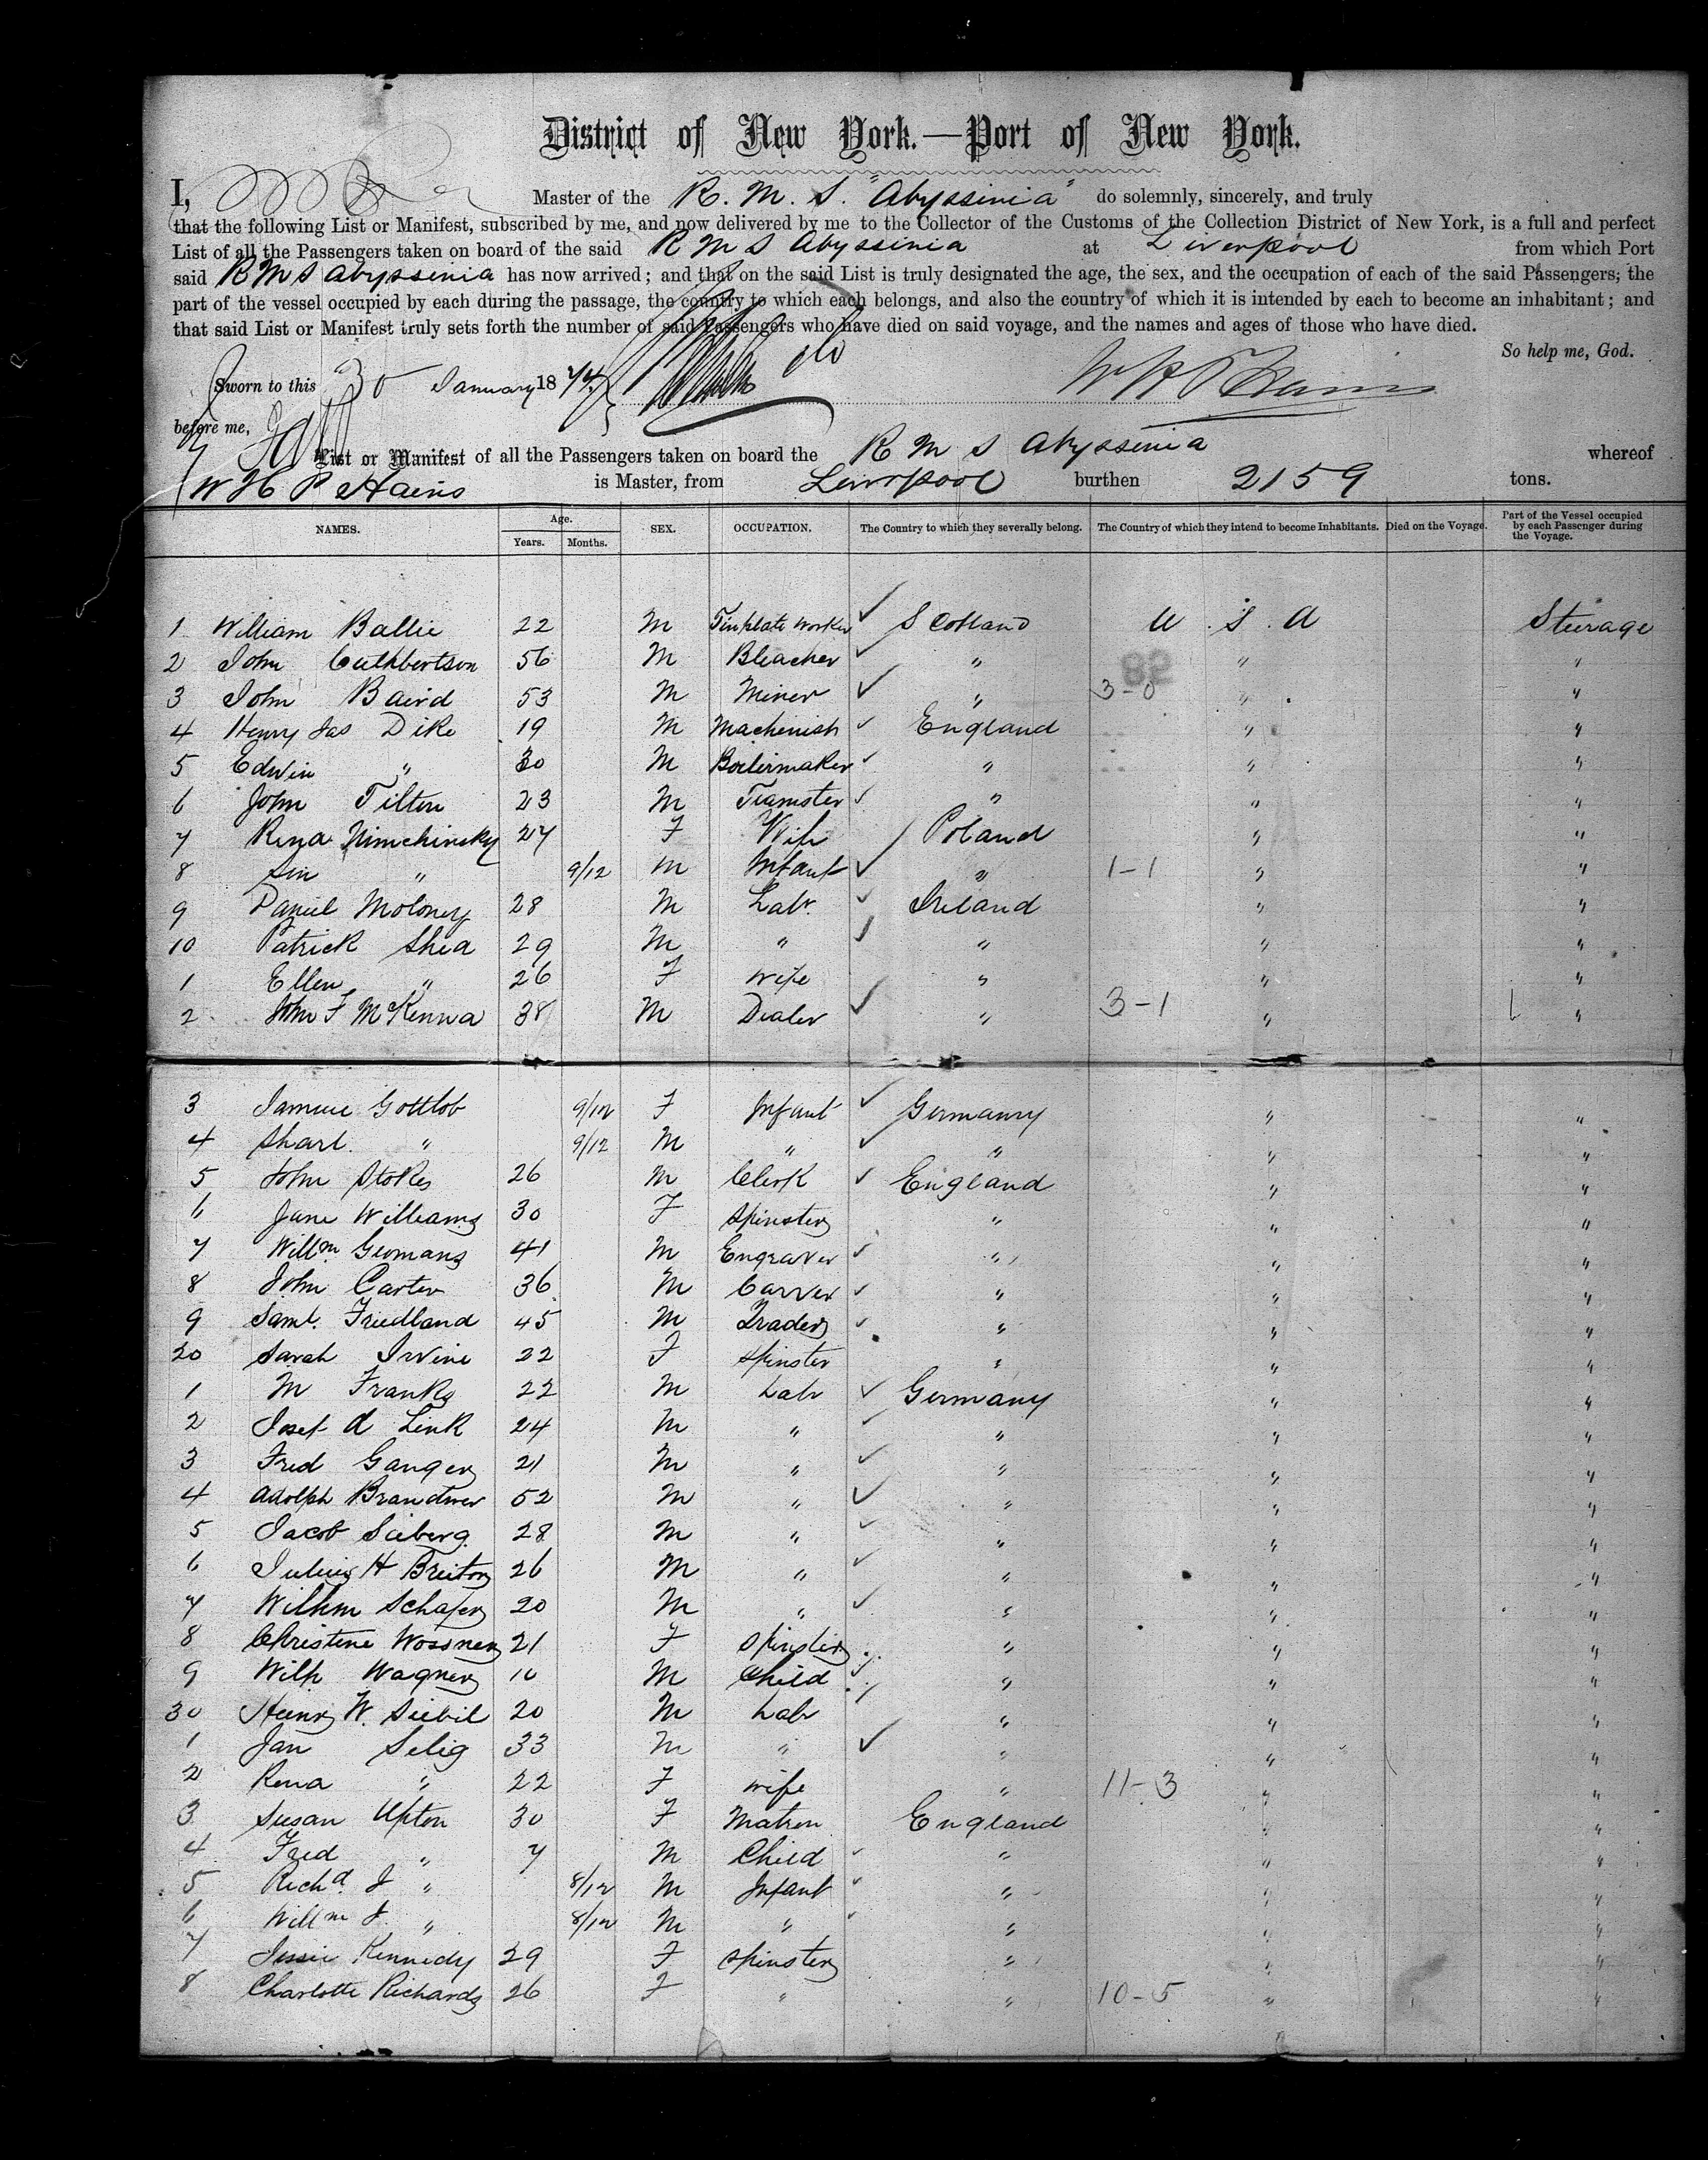 District of New York.—Port of New York.
I, Master of the R. M. S. "Abyssinia" do solemnly, sincerely, and truly
that the following List or Manifest, subscribed by me, and now delivered by me to the Collector of the Customs of the Collection District of New York, is a full and perfect
List of all the Passengers taken on board of the said R M S Abyssinia at Liverpool from which Port
said R M S Abyssinia has now arrived; and that on the said List is truly designated the age, the sex, and the occupation of each of the said Passengers; the
part of the vessel occupied by each during the passage, the country to which each belongs, and also the country of which it is intended by each to become an inhabitant; and
that said List or Manifest truly sets forth the number of said Passengers who have died on said voyage, and the names and ages of those who have died.
So help me, God.
Sworn to this 30 January 1874
before me,
List or Manifest of all the Passengers taken on board the R M S Abyssinia whereof
W H P Hains is Master, from Liverpool burthen 2159 tons.
NAMES. Age. Years. Months. SEX. OCCUPATION. The Country to which they severally belong. The Country of which they intend to become Inhabitants. Died on the Voyage. Part of the Vessel occupied by each Passenger during the Voyage.
1 William Ballie 22 M Tinplate Worker Scotland U.S.A Steerage
82
2 John Cuthbertson 56 M Bleacher " " "
3 John Baird 53 M Miner " 3-0 " "
4 Henry Jas Dike 19 M Machenist England " "
5 Edwin " 30 M Boilermaker " " "
6 John Tilton 23 M Teamster " " "
7 Rena Nimchinsky 27 F Wife Poland " "
8 Son " 9/12 M Infant " 1-1 " "
9 Daniel Moloney 28 M Labr. Ireland " "
10 Patrick Shea 29 M " " " "
1 Ellen " 26 F wife " " "
2 John F McKenna 38 M Dealer " 3-1 " "
3 Gottlob 9/12 F Infant Germany " "
4 " 9/12 M " " " "
5 John Stokes 26 M Clerk England " "
6 Jane Williams 30 F Spinster " " "
7 Willm Geomans 41 M Engraver " " "
8 John Carter 36 M Carver " " "
9 Saml. Friedland 45 M Trader " " "
20 Sarah Irvine 22 F Spinster " " "
1 M Franks 22 M Labr Germany " "
2 Josef A Link 24 M " " " "
3 Fred Ganger 21 M " " " "
4 Adolph Brandwer 52 M " " " "
5 Jacob Sieberg 28 M " " " "
6 Julius H Breiton 26 M " " " "
7 Wilhm Schafer 20 M " " " "
8 Christine Wossner 21 F Spinster " " "
9 Wilh Wagner 10 M Child " " "
30 Heinr W. Siebil 20 M Labr " " "
1 Jan Selig 33 M " " " "
2 Rena " 22 F wife " 11-3 " "
3 Susan Upton 30 F Matron England " "
4 Fred " 7 M Child " " "
5 Richd. J " 8/12 M Infant " " "
6 Willm J. " 8/12 M " " " "
7 Jessie Kennedy 29 F Spinster " " "
8 Charlotte Richards 26 F " " 10-5 " "